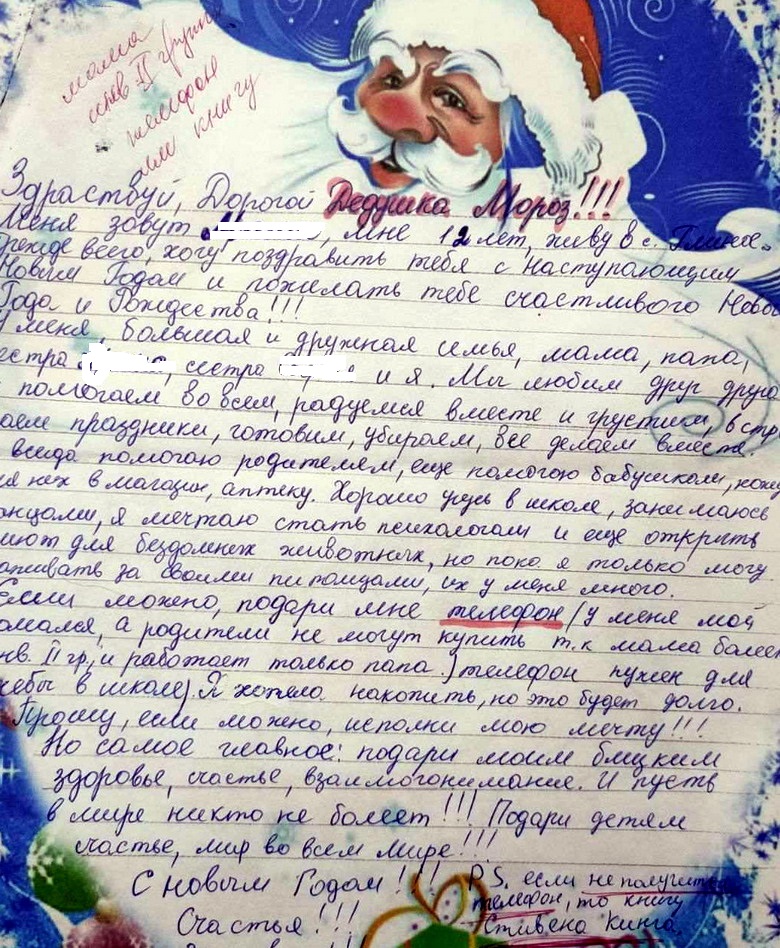 мама
инв II группы
телефон
или книгу
Здраствуй, Дорогой Дедушка Мороз!!!
Меня зовут , мне 12 лет, живу в с.
Прежде всего, хочу поздравить тебя с Наступающим
Новым Годом и пожелать тебе счастливого Нового
Года и Рождества!!!
У меня, большая и дружная семья, мама, папа,
естра , сестра и я. Мы любим друг друга
помогаем во всем, радуемся вместе и грустим, встр
аем праздники, готовим, убираем, все делаем вместе.
всегда помогаю родителям, еще помогаю бабушкам, хожу
ля них в магазин, аптеку. Хорошо учусь в школе, занимаюсь
анцами, я мечтаю стать психологом и еще открыть
июют для бездомных животных, но пока я только могу
аживать за своими питомцами, их у меня много.
Если можно, подари мне телефон (у меня мой
омался, а родители не могут купить т.к мама болеет
нв. II гр, и работает только папа.) телефон нужен для
чебы в школе). Я хотела накопить, но это будет долго.
Прошу, если можно, исполни мою мечту!!!
Но самое главное: подари моим близким
здоровье, счастье, взаимопонимание. И пусть
в мире никто не болеет!!! Подари детям
счастье, мир во всем мире!!!
С новым Годом!!!
Счастья!!!
P.S. если не получится
телефон, то книгу
Стивена Кинга.